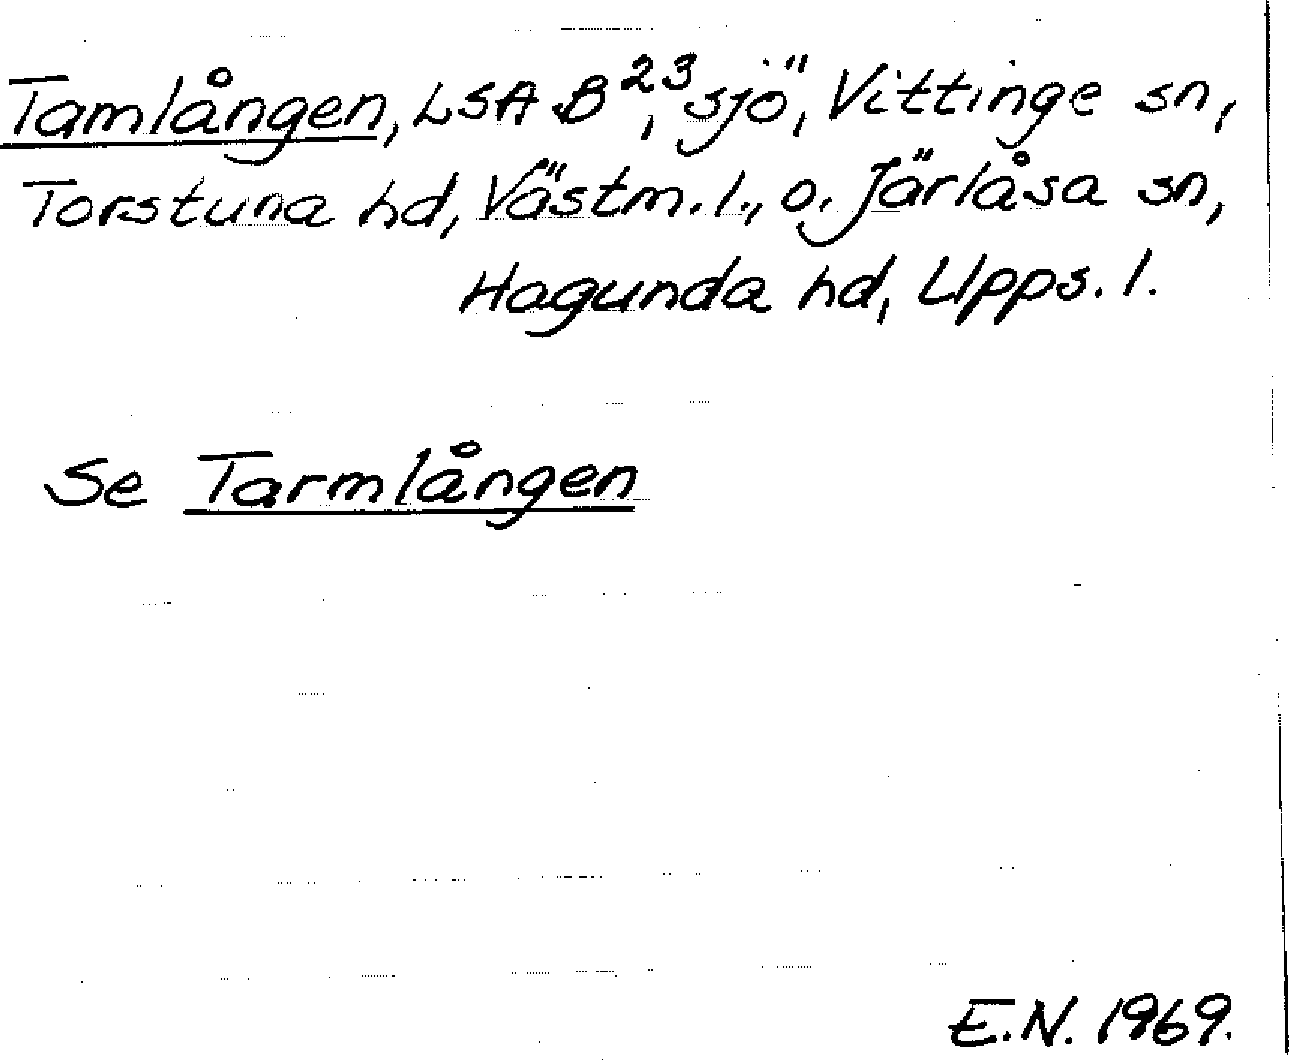 Tamlången, LSA B 23, sjö, Vittinge sn,
Torstuna hd, Västm. l., o. Järlåsa sn,
Hagunda hd, Upps. l.
Se Tarmlången
E.N. 1969.